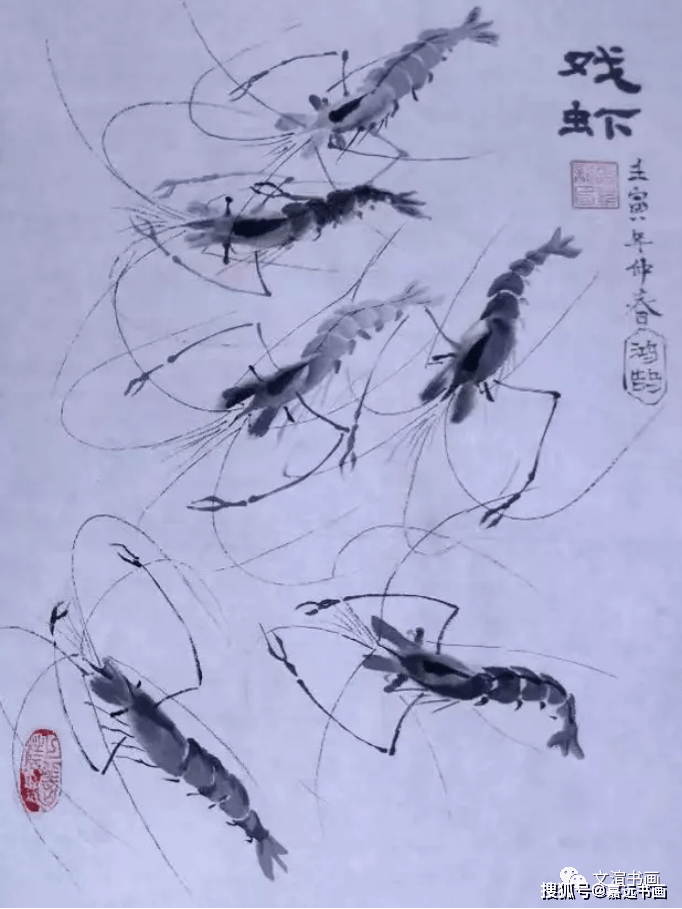 戏虾
壬寅年仲春
鸿鹄
文渲书画
搜狐号@嘉远书画